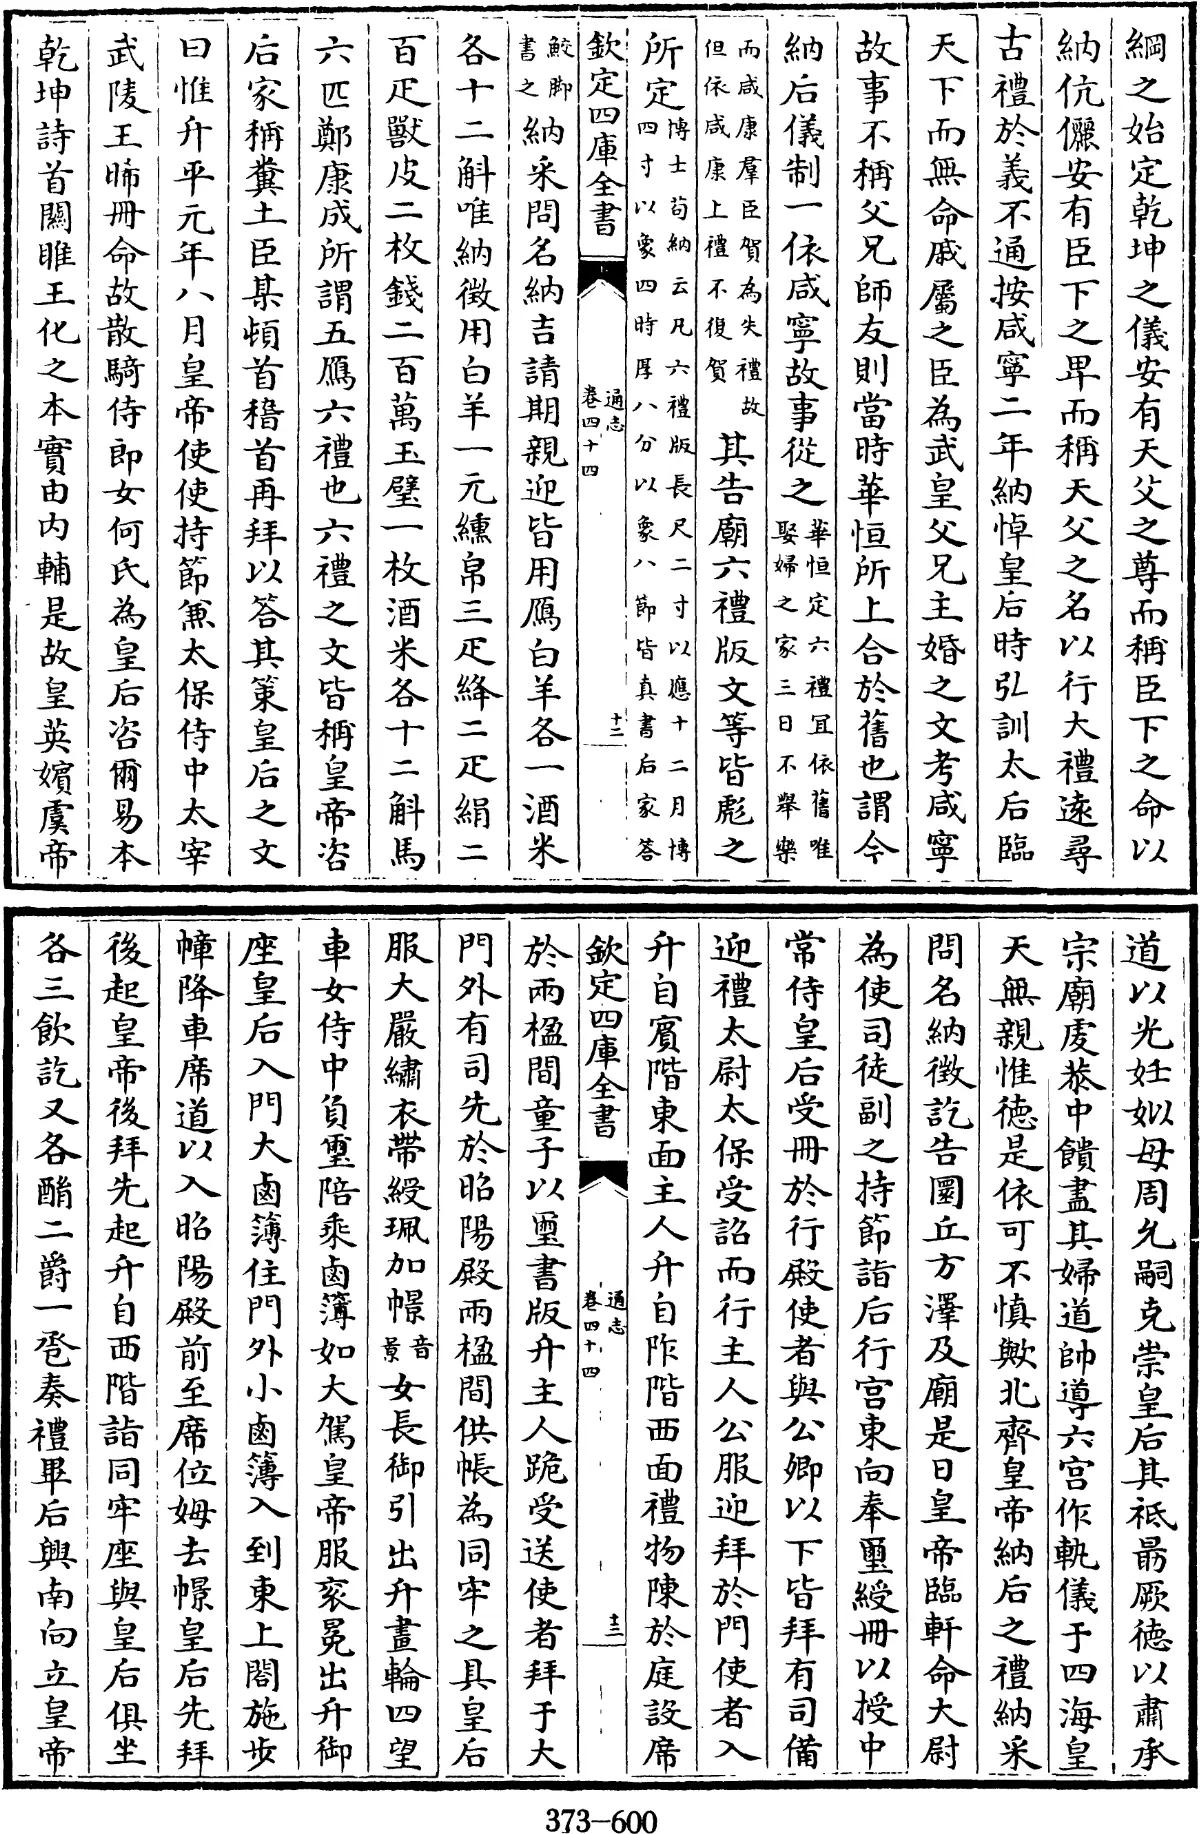 綱之始定乾坤之儀安有天父之尊而稱臣下之命以
納伉儷安有臣下之卑而稱天父之名以行大禮遠尋
古禮於義不通按咸寧二年納悼皇后時弘訓太后臨
天下而無命戚屬之臣為武皇父兄主婚之文考咸寧
故事不稱父兄師友則當時華恒所上合於舊也謂今
納后儀制一依咸寧故事從之華恒定六禮宜依舊唯娶婦之家三日不舉樂
而咸康羣臣賀為失禮故但依咸康上禮不復賀其告廟六禮版文等皆彪之
所定博士荀納云凡六禮版長尺二寸以應十二月博四寸以象四時厚八分以象八節皆真書后家答
欽定四庫全書
通志
卷四十四
十二
鮫脚書之納采問名納吉請期親迎皆用鴈白羊各一酒米
各十二斛唯納徵用白羊一元纁帛三疋絳二疋絹二
百疋獸皮二枚錢二百萬玉璧一枚酒米各十二斛馬
六匹鄭康成所謂五鴈六禮也六禮之文皆稱皇帝咨
后家稱糞土臣某頓首稽首再拜以答其策皇后之文
曰惟升平元年八月皇帝使使持節兼太保侍中太宰
武陵王晞冊命故散騎侍郎女何氏為皇后咨爾易本
乾坤詩首關雎王化之本實由内輔是故皇英嬪虞帝
道以光妊姒母周允嗣克崇皇后其祗勗厥德以肅承
宗廟虔恭中饋盡其婦道帥導六宫作軌儀于四海皇
天無親惟德是依可不慎歟北齊皇帝納后之禮納采
問名納徵訖告圜丘方澤及廟是日皇帝臨軒命太尉
為使司徒副之持節詣后行宫東向奉璽綬冊以授中
常侍皇后受冊於行殿使者與公卿以下皆拜有司備
迎禮太尉太保受詔而行主人公服迎拜於門使者入
升自賓階東面主人升自阼階西面禮物陳於庭設席
欽定四庫全書
通志
卷四十四
十三
於兩楹間童子以璽書版升主人跪受送使者拜于大
門外有司先於昭陽殿兩楹間供帳為同牢之具皇后
服大嚴繡衣帶綬珮加幜音景女長御引出升畫輪四望
車女侍中負璽陪乘鹵簿如大駕皇帝服衮冕出升御
座皇后入門大鹵簿住門外小鹵簿入到東上閤施步
幛降車席道以入昭陽殿前至席位姆去幜皇后先拜
後起皇帝後拜先起升自西階詣同牢座與皇后俱坐
各三飲訖又各酳二爵一卺奏禮畢后興南向立皇帝
373-600